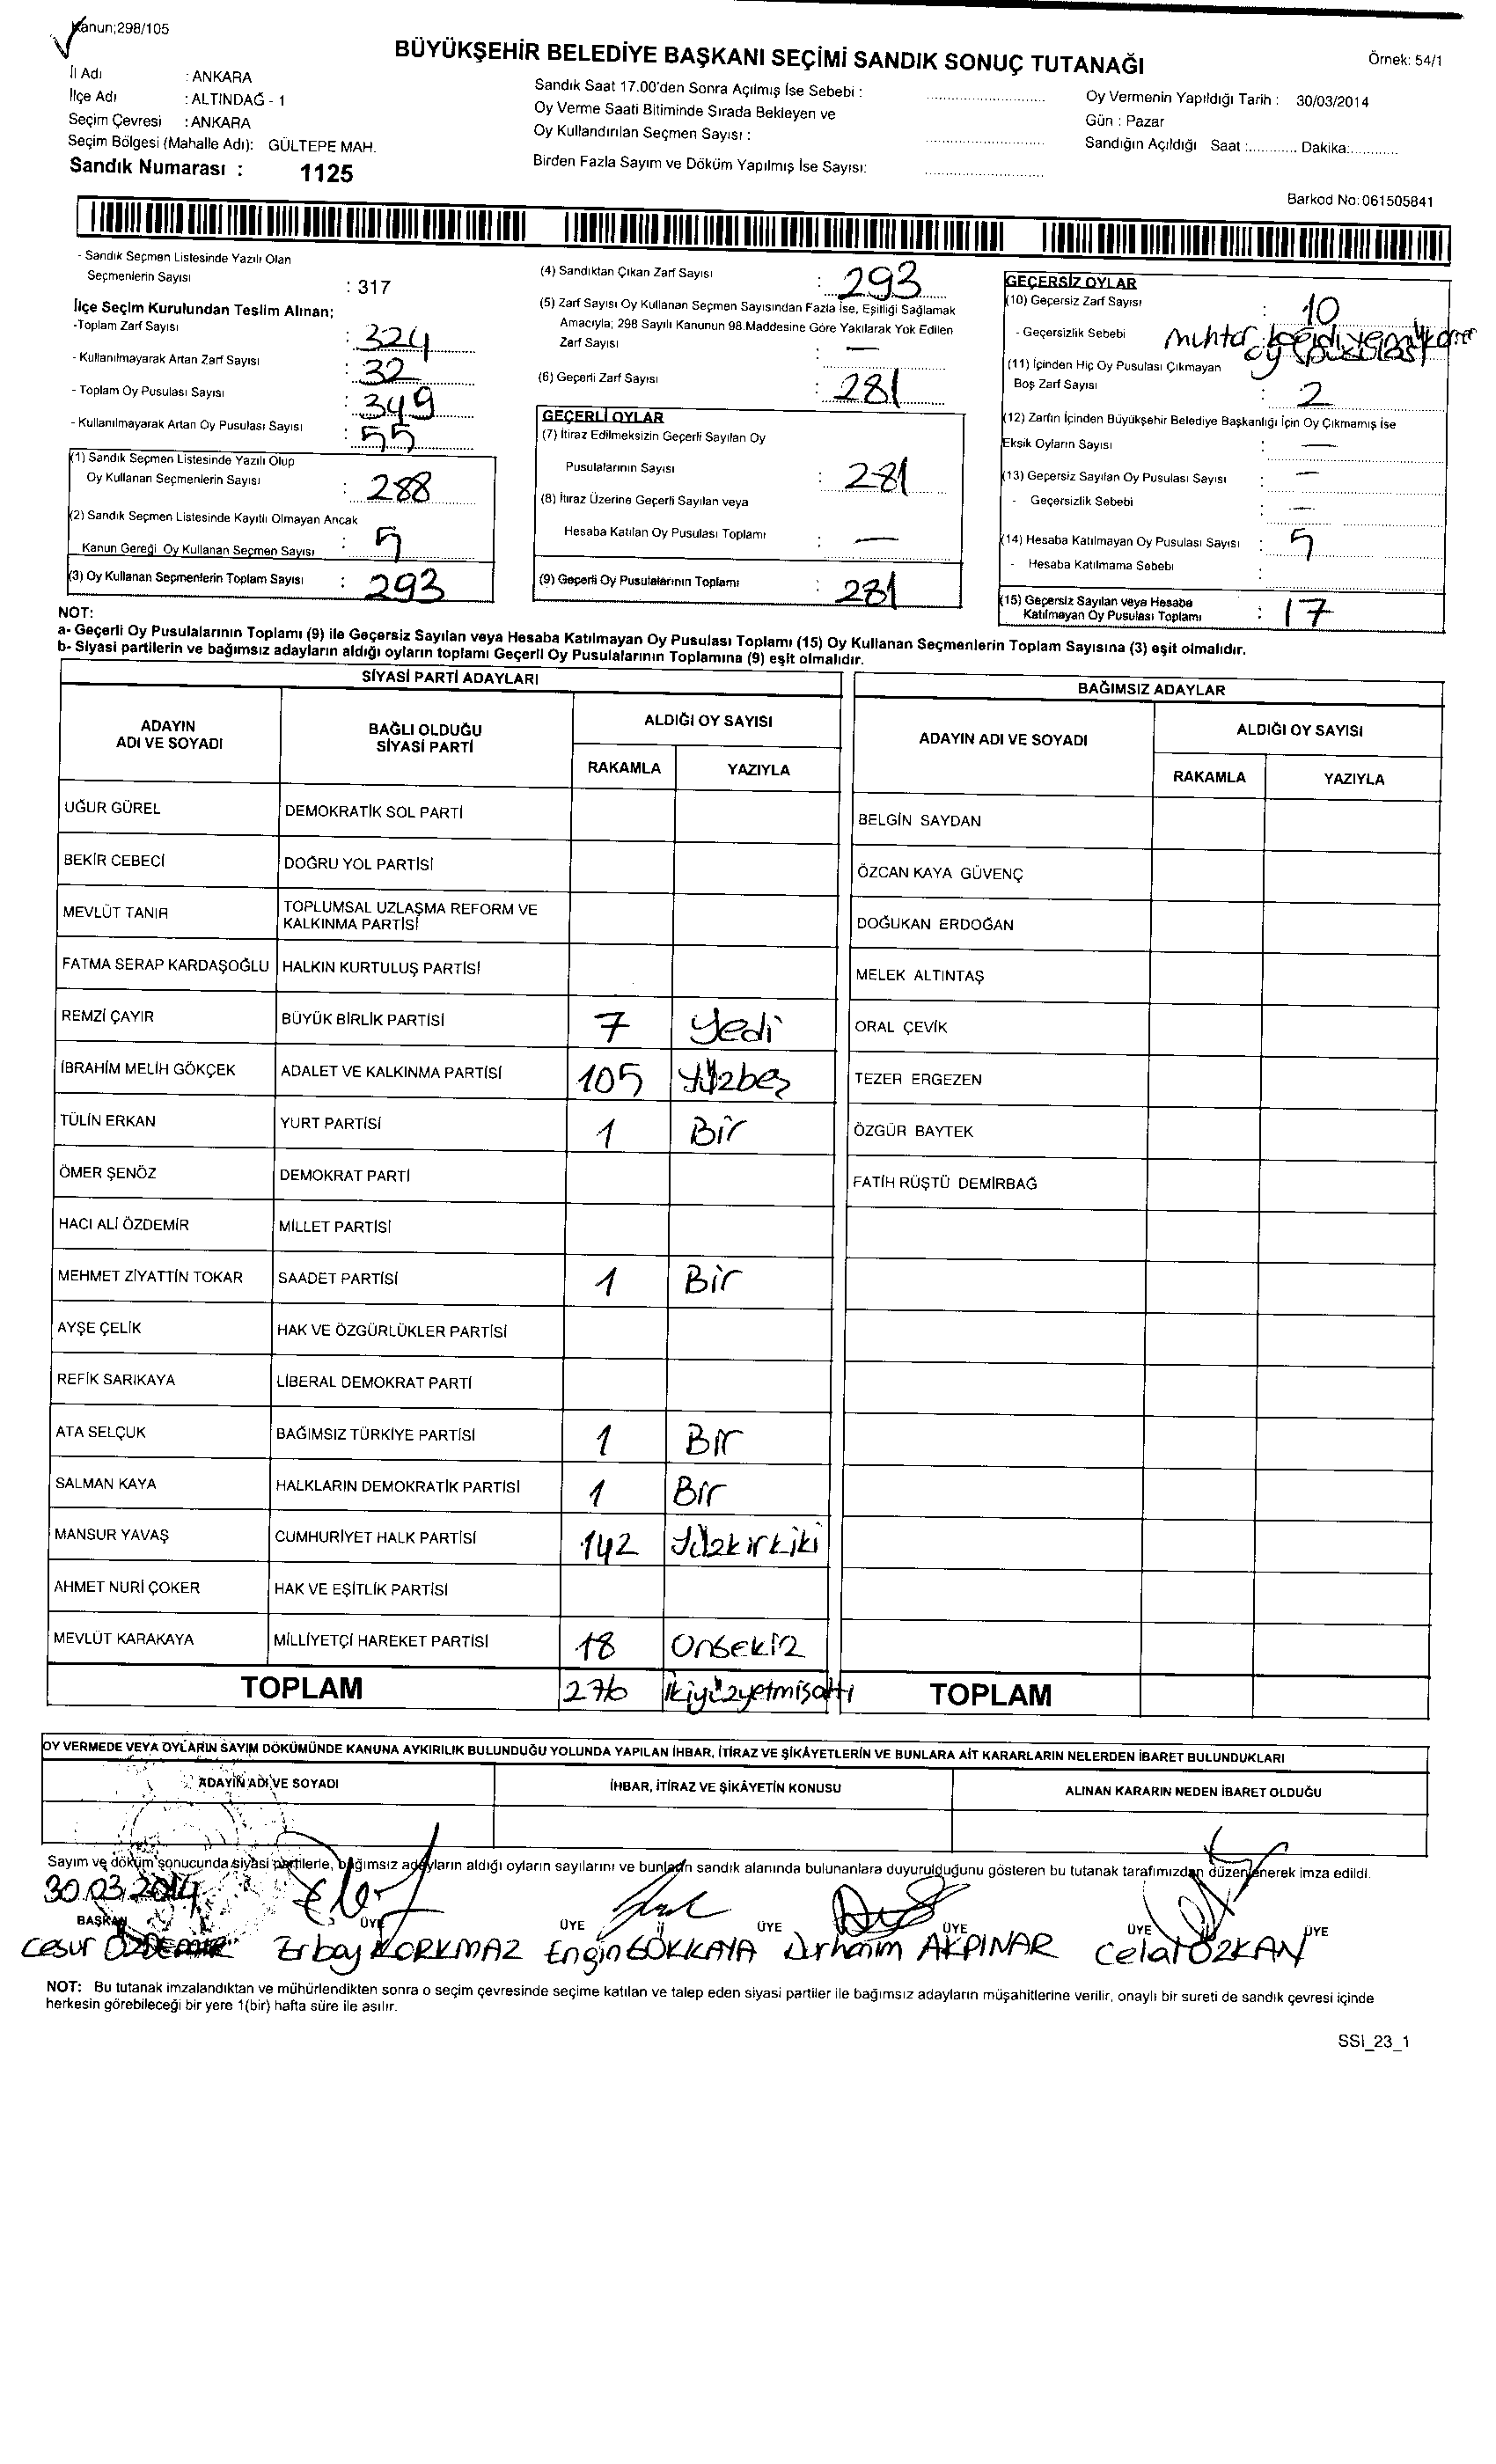 Kanun;298/105
BÜYÜKŞEHİR BELEDİYE BAŞKANI SEÇİMİ SANDIK SONUÇ TUTANAĞI
Örnek: 54/1
İl Adı : ANKARA
İlçe Adı : ALTINDAĞ - 1
Seçim Çevresi : ANKARA
Seçim Bölgesi (Mahalle Adı): GÜLTEPE MAH.
Sandık Numarası : 1125
Sandık Saat 17.00'den Sonra Açılmış İse Sebebi :
Oy Verme Saati Bitiminde Sırada Bekleyen ve
Oy Kullandırılan Seçmen Sayısı :
Birden Fazla Sayım ve Döküm Yapılmış İse Sayısı:
Oy Vermenin Yapıldığı Tarih : 30/03/2014
Gün : Pazar
Sandığın Açıldığı Saat :............ Dakika:............
Barkod No: 061505841
- Sandık Seçmen Listesinde Yazılı Olan
Seçmenlerin Sayısı : 317
İlçe Seçim Kurulundan Teslim Alınan;
-Toplam Zarf Sayısı : 324
- Kullanılmayarak Artan Zarf Sayısı : 32
- Toplam Oy Pusulası Sayısı : 349
- Kullanılmayarak Artan Oy Pusulası Sayısı : 55
(1) Sandık Seçmen Listesinde Yazılı Olup
Oy Kullanan Seçmenlerin Sayısı : 288
(2) Sandık Seçmen Listesinde Kayıtlı Olmayan Ancak
Kanun Gereği Oy Kullanan Seçmen Sayısı : 5
(3) Oy Kullanan Seçmenlerin Toplam Sayısı : 293
(4) Sandıktan Çıkan Zarf Sayısı : 293
(5) Zarf Sayısı Oy Kullanan Seçmen Sayısından Fazla İse, Eşitliği Sağlamak
Amacıyla; 298 Sayılı Kanunun 98.Maddesine Göre Yakılarak Yok Edilen
Zarf Sayısı : —
(6) Geçerli Zarf Sayısı : 281
GEÇERLİ OYLAR
(7) İtiraz Edilmeksizin Geçerli Sayılan Oy
Pusulalarının Sayısı : 281
(8) İtiraz Üzerine Geçerli Sayılan veya
Hesaba Katılan Oy Pusulası Toplamı : —
(9) Geçerli Oy Pusulalarının Toplamı : 281
GEÇERSİZ OYLAR
(10) Geçersiz Zarf Sayısı : 10
- Geçersizlik Sebebi : muhtar
oy pusulası
(11) İçinden Hiç Oy Pusulası Çıkmayan
Boş Zarf Sayısı : 2
(12) Zarfın İçinden Büyükşehir Belediye Başkanlığı İçin Oy Çıkmamış İse
Eksik Oyların Sayısı : —
(13) Geçersiz Sayılan Oy Pusulası Sayısı : —
- Geçersizlik Sebebi : —
(14) Hesaba Katılmayan Oy Pusulası Sayısı : 5
- Hesaba Katılmama Sebebi :
(15) Geçersiz Sayılan veya Hesaba
Katılmayan Oy Pusulası Toplamı : 17
NOT:
a- Geçerli Oy Pusulalarının Toplamı (9) ile Geçersiz Sayılan veya Hesaba Katılmayan Oy Pusulası Toplamı (15) Oy Kullanan Seçmenlerin Toplam Sayısına (3) eşit olmalıdır.
b- Siyasi partilerin ve bağımsız adayların aldığı oyların toplamı Geçerli Oy Pusulalarının Toplamına (9) eşit olmalıdır.
SİYASİ PARTİ ADAYLARI
ADAYIN ADI VE SOYADI
BAĞLI OLDUĞU SİYASİ PARTİ
ALDIĞI OY SAYISI
RAKAMLA YAZIYLA
UĞUR GÜREL DEMOKRATİK SOL PARTİ
BEKİR CEBECİ DOĞRU YOL PARTİSİ
MEVLÜT TANIR TOPLUMSAL UZLAŞMA REFORM VE KALKINMA PARTİSİ
FATMA SERAP KARDAŞOĞLU HALKIN KURTULUŞ PARTİSİ
REMZİ ÇAYIR BÜYÜK BİRLİK PARTİSİ 7 Yedi
İBRAHİM MELİH GÖKÇEK ADALET VE KALKINMA PARTİSİ 105 Yüzbeş
TÜLİN ERKAN YURT PARTİSİ 1 Bir
ÖMER ŞENÖZ DEMOKRAT PARTİ
HACI ALİ ÖZDEMİR MİLLET PARTİSİ
MEHMET ZİYATTİN TOKAR SAADET PARTİSİ 1 Bir
AYŞE ÇELİK HAK VE ÖZGÜRLÜKLER PARTİSİ
REFİK SARIKAYA LİBERAL DEMOKRAT PARTİ
ATA SELÇUK BAĞIMSIZ TÜRKİYE PARTİSİ 1 Bir
SALMAN KAYA HALKLARIN DEMOKRATİK PARTİSİ 1 Bir
MANSUR YAVAŞ CUMHURİYET HALK PARTİSİ 142 Yüzkırkiki
AHMET NURİ ÇOKER HAK VE EŞİTLİK PARTİSİ
MEVLÜT KARAKAYA MİLLİYETÇİ HAREKET PARTİSİ 18 Onsekiz
TOPLAM 276 ikiyüzyetmişaltı
BAĞIMSIZ ADAYLAR
ADAYIN ADI VE SOYADI
ALDIĞI OY SAYISI
RAKAMLA YAZIYLA
BELGİN SAYDAN
ÖZCAN KAYA GÜVENÇ
DOĞUKAN ERDOĞAN
MELEK ALTINTAŞ
ORAL ÇEVİK
TEZER ERGEZEN
ÖZGÜR BAYTEK
FATİH RÜŞTÜ DEMİRBAĞ
TOPLAM
OY VERMEDE VEYA OYLARIN SAYIM DÖKÜMÜNDE KANUNA AYKIRILIK BULUNDUĞU YOLUNDA YAPILAN İHBAR, İTİRAZ VE ŞİKÂYETLERİN VE BUNLARA AİT KARARLARIN NELERDEN İBARET BULUNDUKLARI
ADAYIN ADI VE SOYADI
İHBAR, İTİRAZ VE ŞİKÂYETİN KONUSU
ALINAN KARARIN NEDEN İBARET OLDUĞU
Sayım ve döküm sonucunda siyasi partilerle, bağımsız adayların aldığı oyların sayılarını ve bunların sandık alanında bulunanlara duyurulduğunu gösteren bu tutanak tarafımızdan düzenlenerek imza edildi.
30.03.2014
BAŞKAN ÜYE ÜYE ÜYE ÜYE ÜYE ÜYE
Cesur ÖZDEMİR Erbay KORKMAZ Engin GÖKKAYA AKPINAR Celal ÖZKAN
NOT: Bu tutanak imzalandıktan ve mühürlendikten sonra o seçim çevresinde seçime katılan ve talep eden siyasi partiler ile bağımsız adayların müşahitlerine verilir, onaylı bir sureti de sandık çevresi içinde
herkesin görebileceği bir yere 1(bir) hafta süre ile asılır.
SSI_23_1